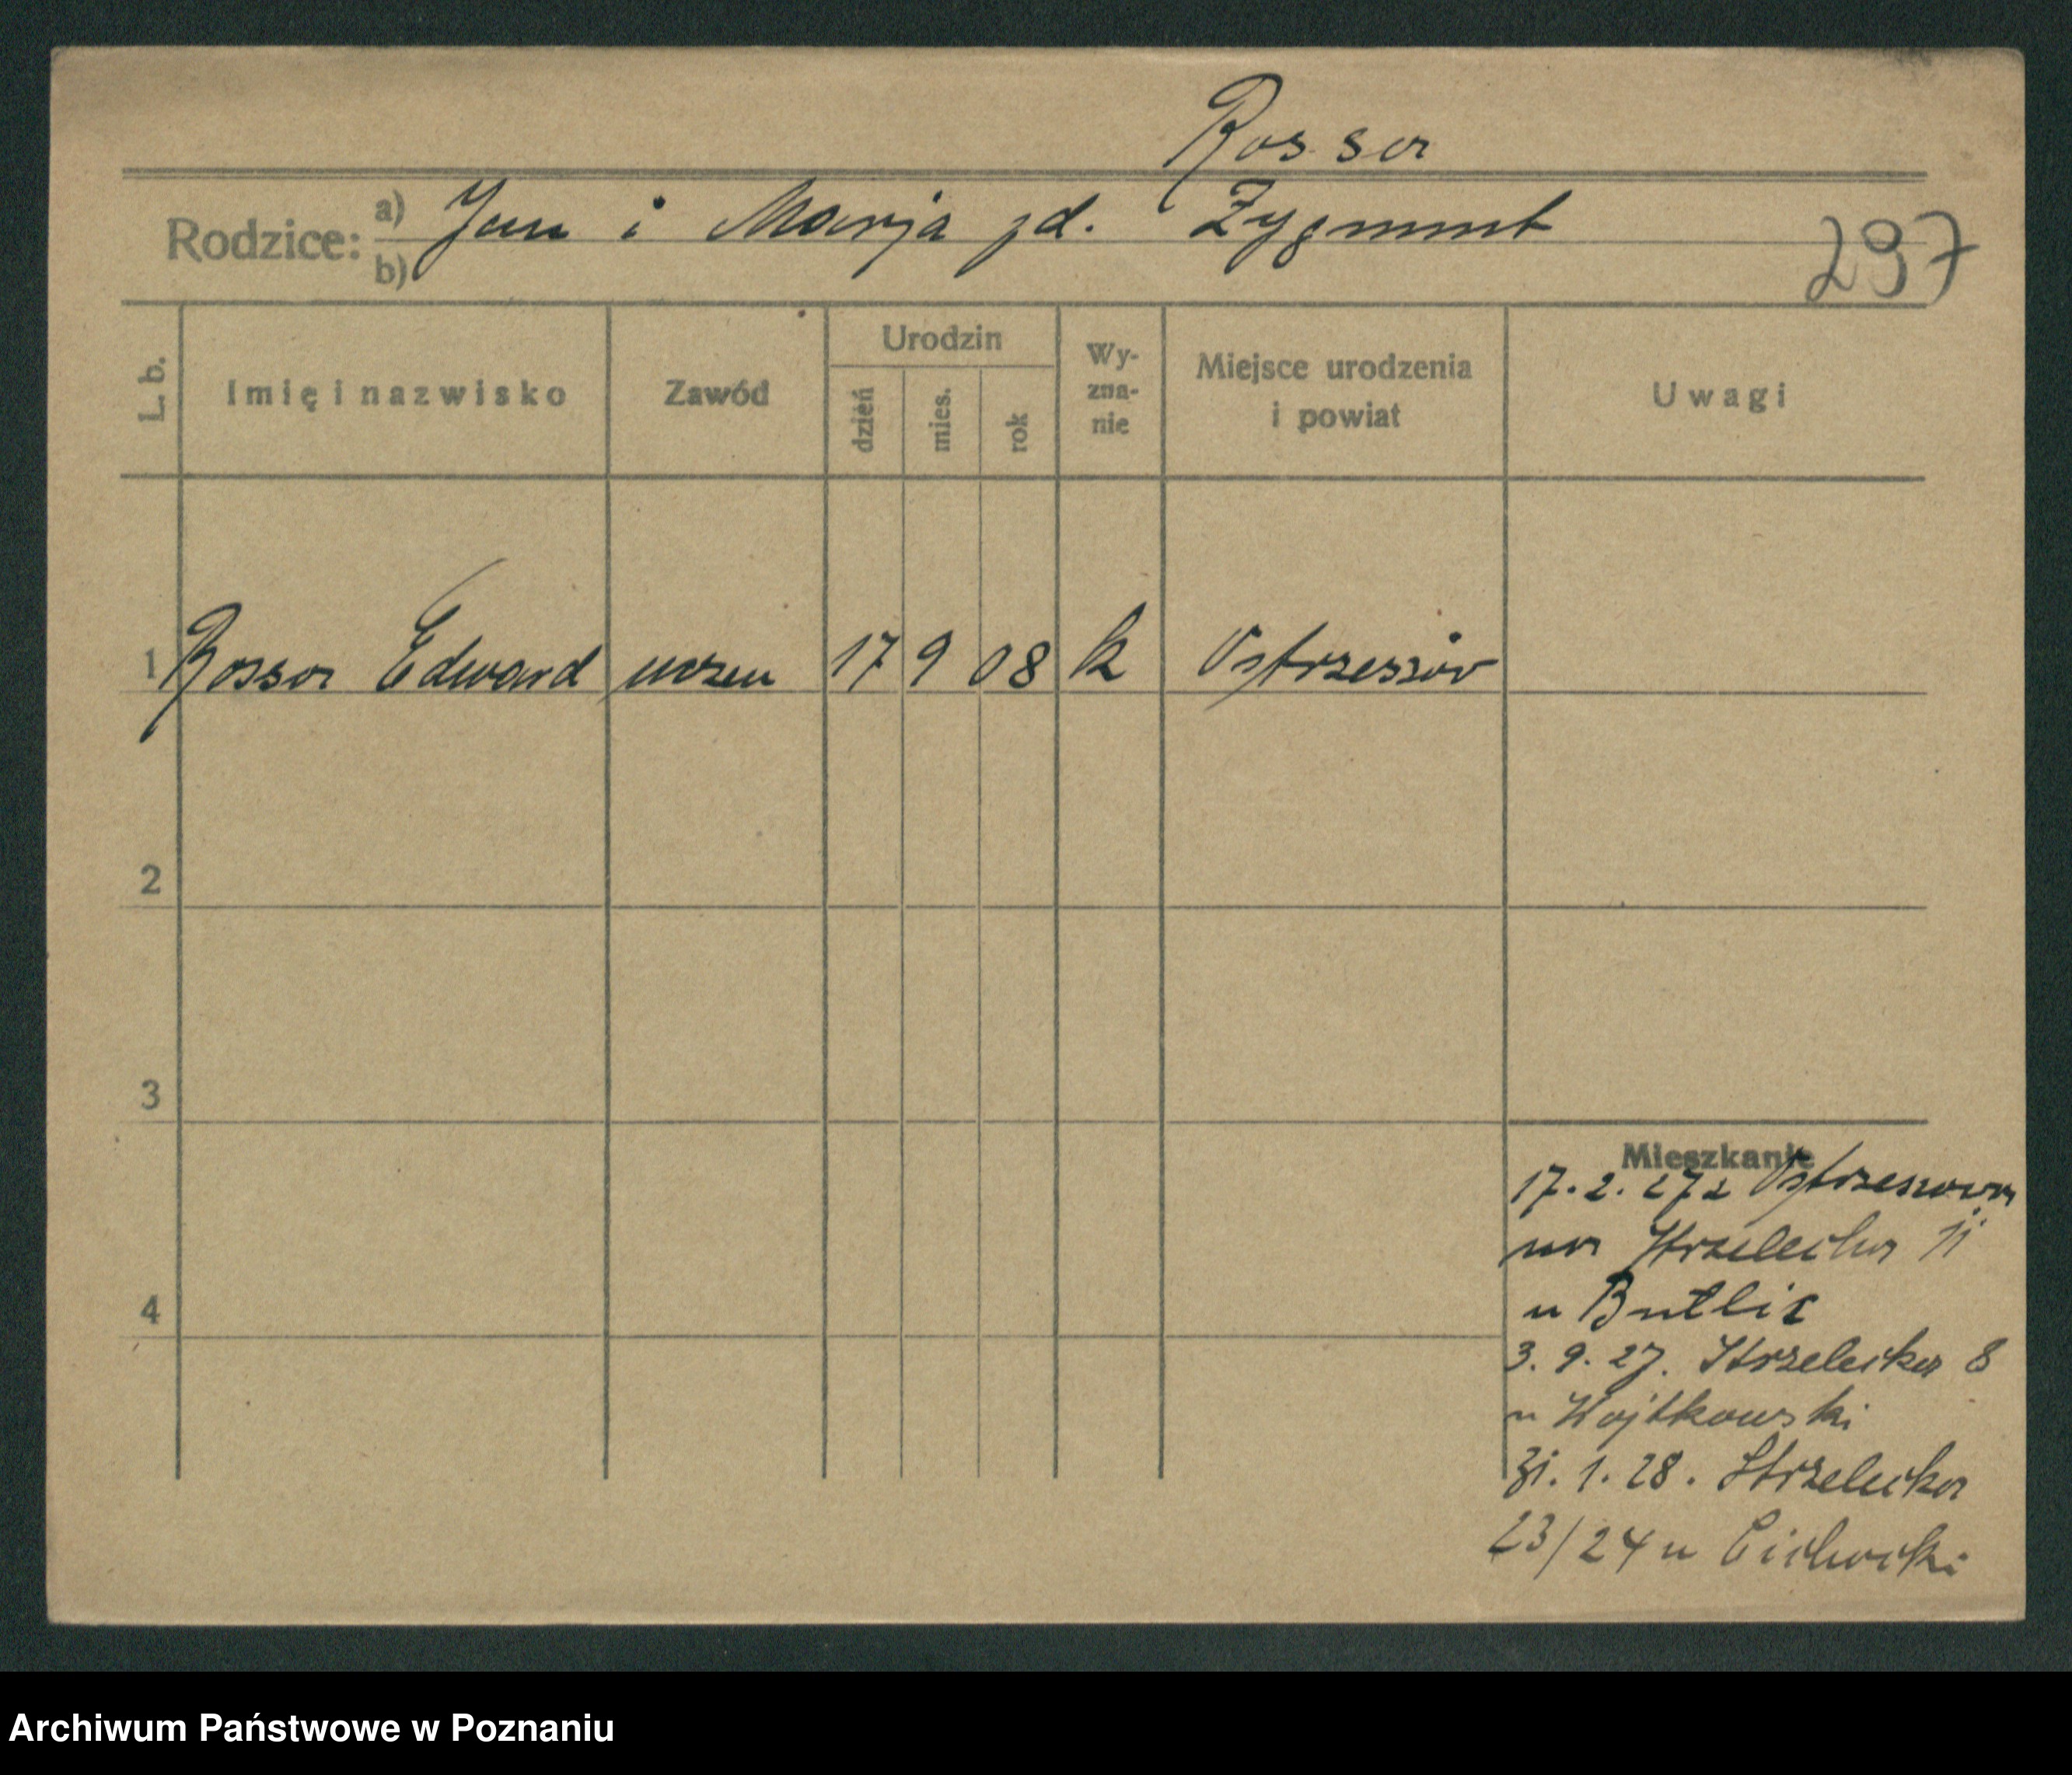 Rossa
Rodzice: a) Jan i Marja zd. Zygmunt
b)
237
L. b. Imię i nazwisko Zawód Urodzin dzień mies. rok Wyznanie Miejsce urodzenia i powiat Uwagi
1 Rossa Edward uczeń 17 9 08 k Ostrzeszów
2
3
4
Mieszkanie
17. 2. 27 z Ostrzeszowa
na Strzelecka 11
u Butlic
3. 9. 27. Strzelecka 8
u Wojtkowski
31. 1. 28. Strzelecka
23/24 u Cichocki
Archiwum Państwowe w Poznaniu